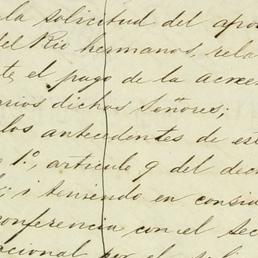 la solicitud del apo
del Rio hermanos, rela
te, el pago de la acree
arios dichos Señores;
los antecedentes de est
1º, articulo 9 del dec
i teniendo en consid
conferencia con el sec
nacional por el